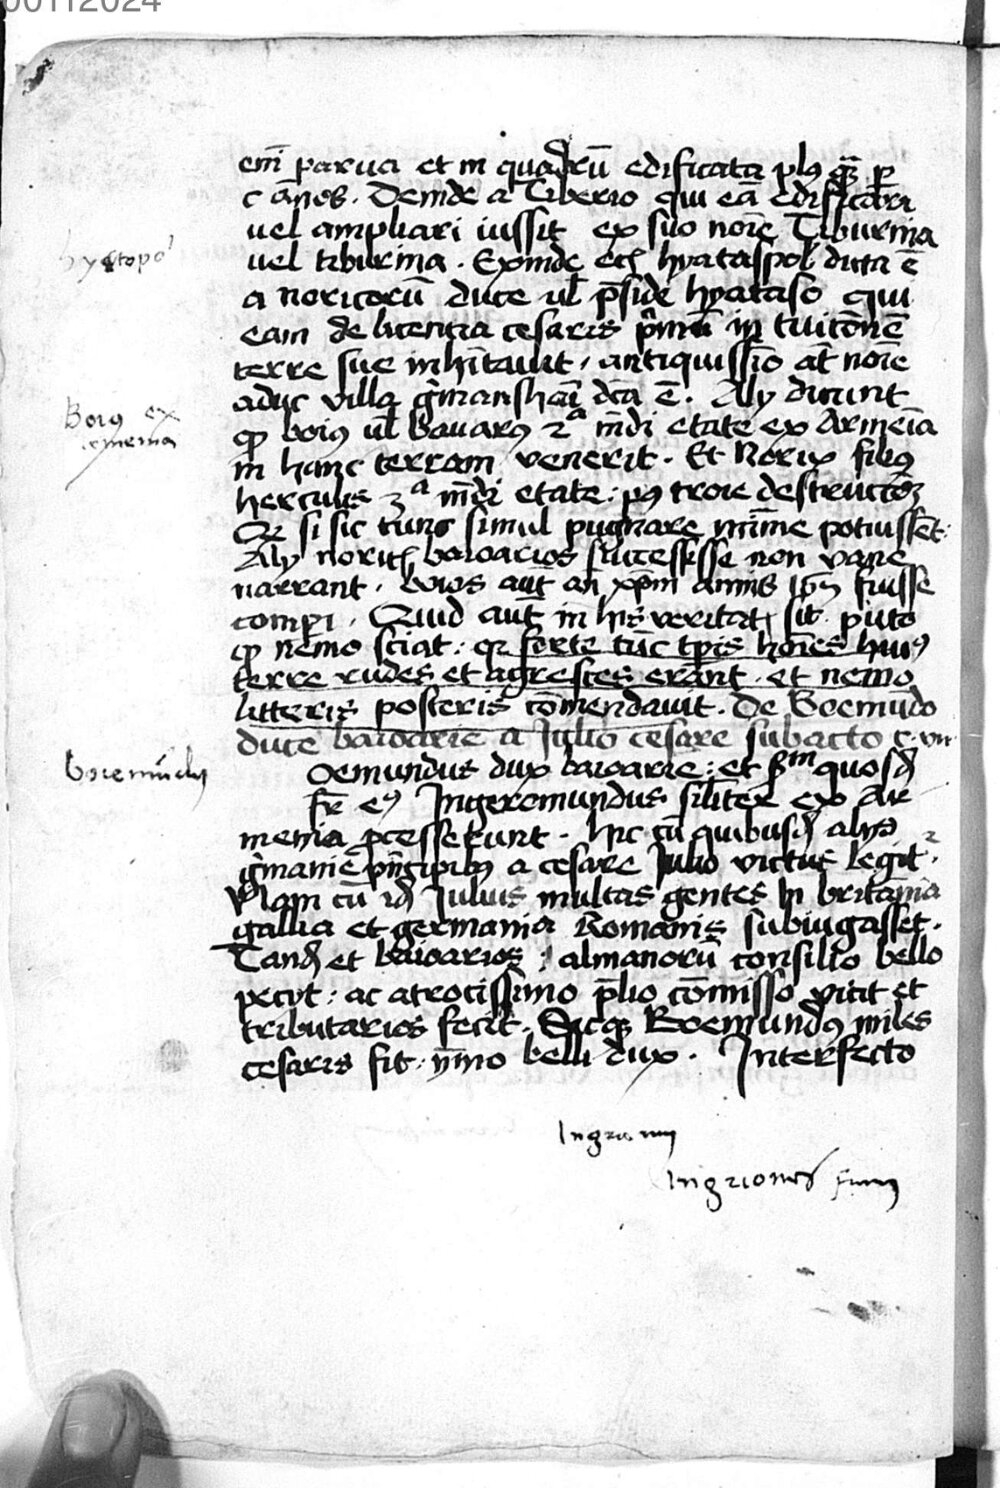 00112024
em̄ parua et in quadrū edificata pl9 q̄ꝫ ꝑ
c ān̄os. Deinde a Tiberio qui eā edificari
uel ampliari iussit ex suo noīe Tiburnia
uel tiburina. Exinde etꝫ hyataspol' dicta ē
hystopo'
a noricorū duce ul' p̄side hyataso qui
eam de licentia cesaris p̄mū in tuitōnē
terre sue inhītauit, antiquissīo at̄ noīe
aduc villa g̓manshaī dc̄a ē. Aly dicunt
Boi9 ex
armenia
ꝙ boi9 ul' Bauar9 2ᵃ m̄di etate ex Armeīa
in hanc terram venerit. Et Norix fili9
herculis 3ᵃ m̄di etate: p9 troie destructōꝫ
Qr̄ si sic tunc simul pugnare mīme potuissēt.
Aly noricꝭ baioarios successisse non vane
narrant. Boios aut̄ an̄ xp̄m annis fuisse
comp̄i. Quid aut̄ in his veritatꝭ sit puto
ꝙ nemo sciat: qr forte tūc tp̄is hōies hui9
terre rudes et agrestes erant. et nemo
litteris posteris cōmendauit. De Boemūdo
duce baioarie a Julio cesare subacto c. vii
Boiemūd9
oemundus dux baioarie: et sᵐ quosdꝫ
fr̄ e9 Ingeromundus silit̄er ex Ar
menia ꝓcesserunt. hic cū quibusdꝫ alijs
g̓manie pn̄cipib9 a cesare Julio victus legit2.
Nam cū idꝫ Julius multas gentes In britānia
gallia et germania Romanis subiugasset.
Tandꝫ et baioarios: almanorū consilio bello
pecyt: ac atrocissimo p̄lio cōmisso vicit et
tributarios fecit. Sicqꝫ Boemund9 miles
cesaris fit. ymmo belli dux. Interfecto
Ingriones